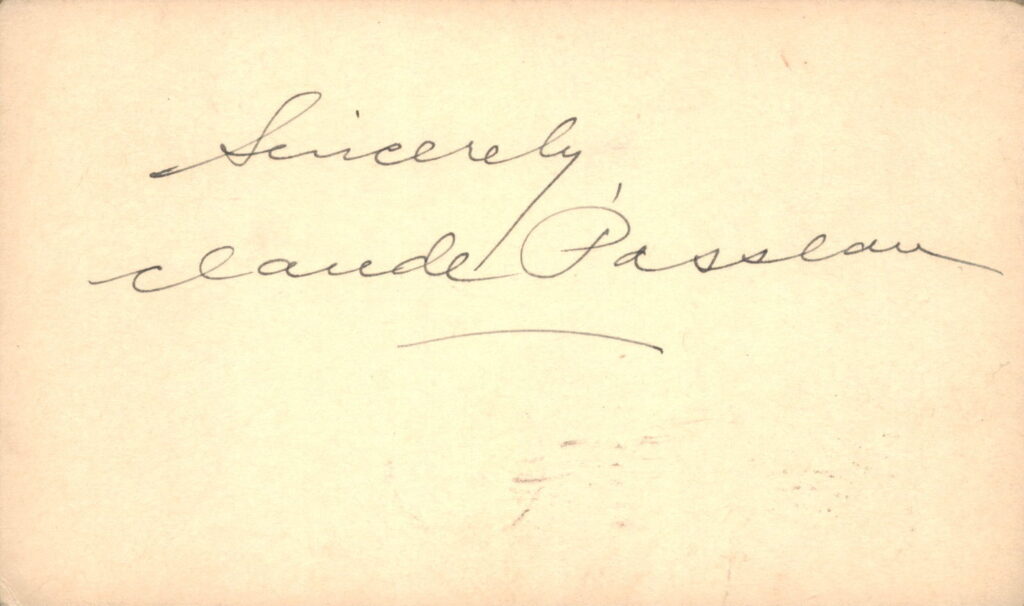 Sincerely,
Claude Passeau